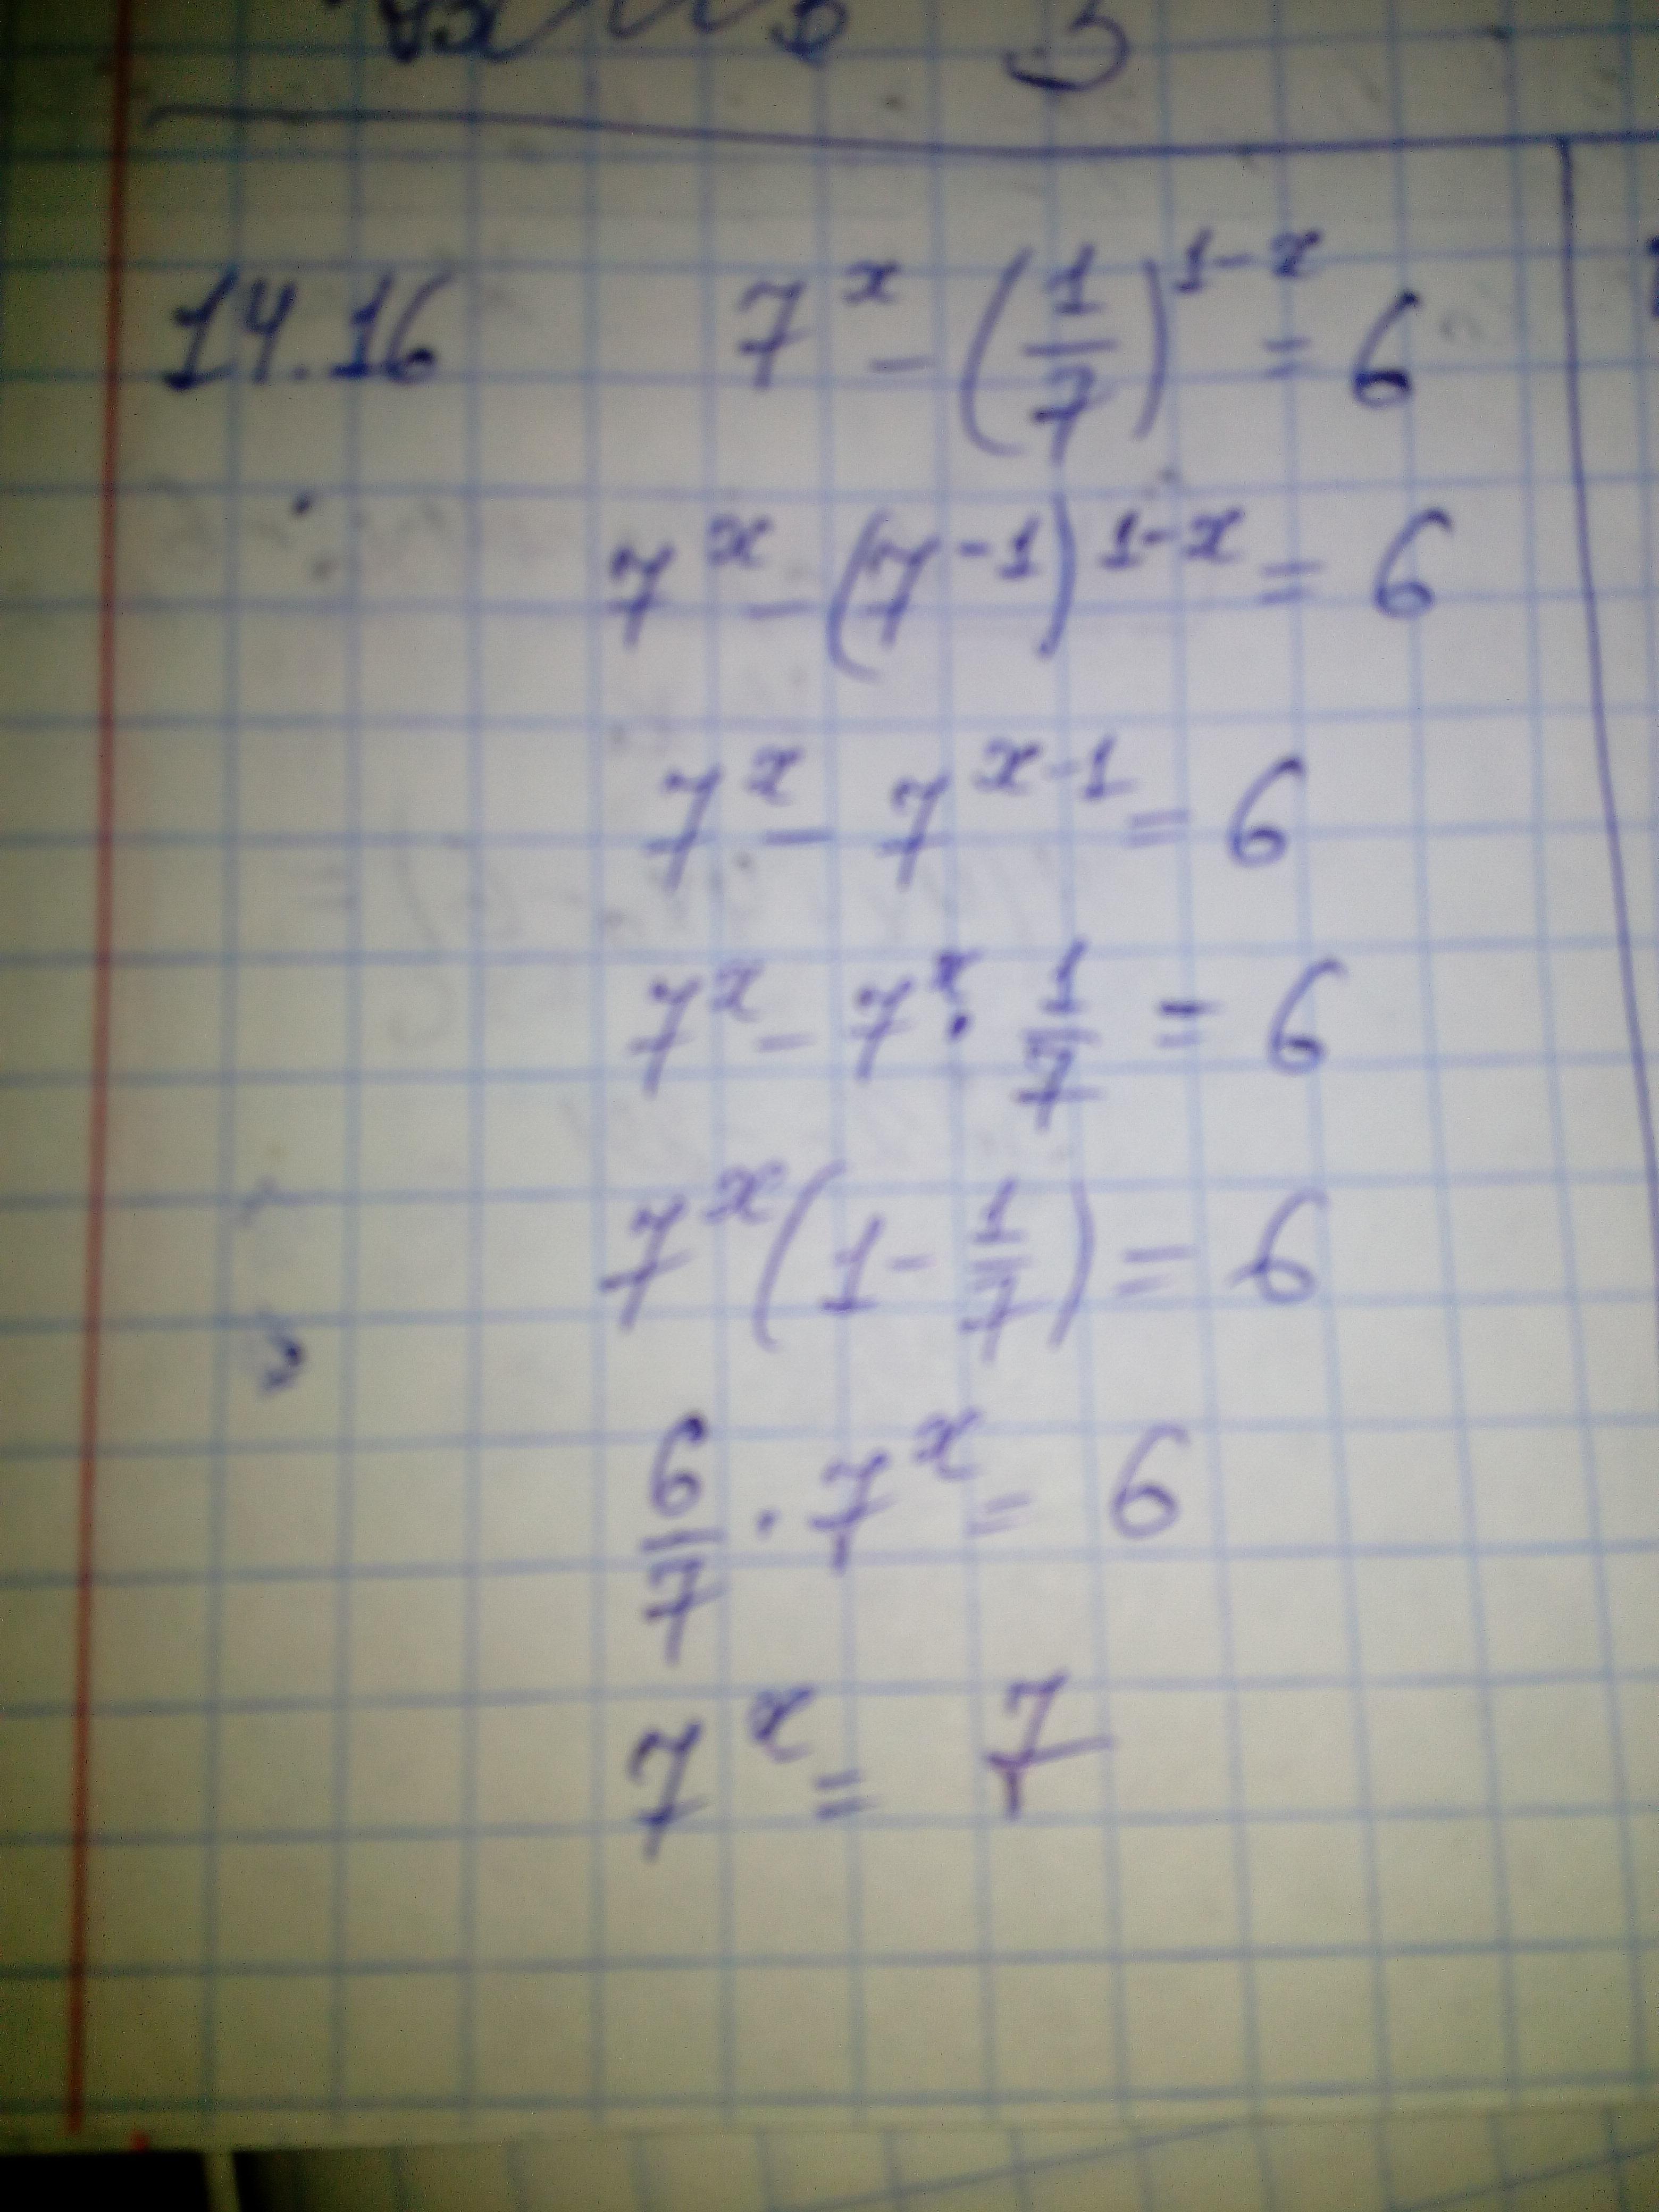 14.16 7^x - (1/7)^{1-x} = 6
7^x - (7^{-1})^{1-x} = 6
7^x - 7^{x-1} = 6
7^x - 7^x · 1/7 = 6
7^x (1 - 1/7) = 6
6/7 · 7^x = 6
7^x = 7